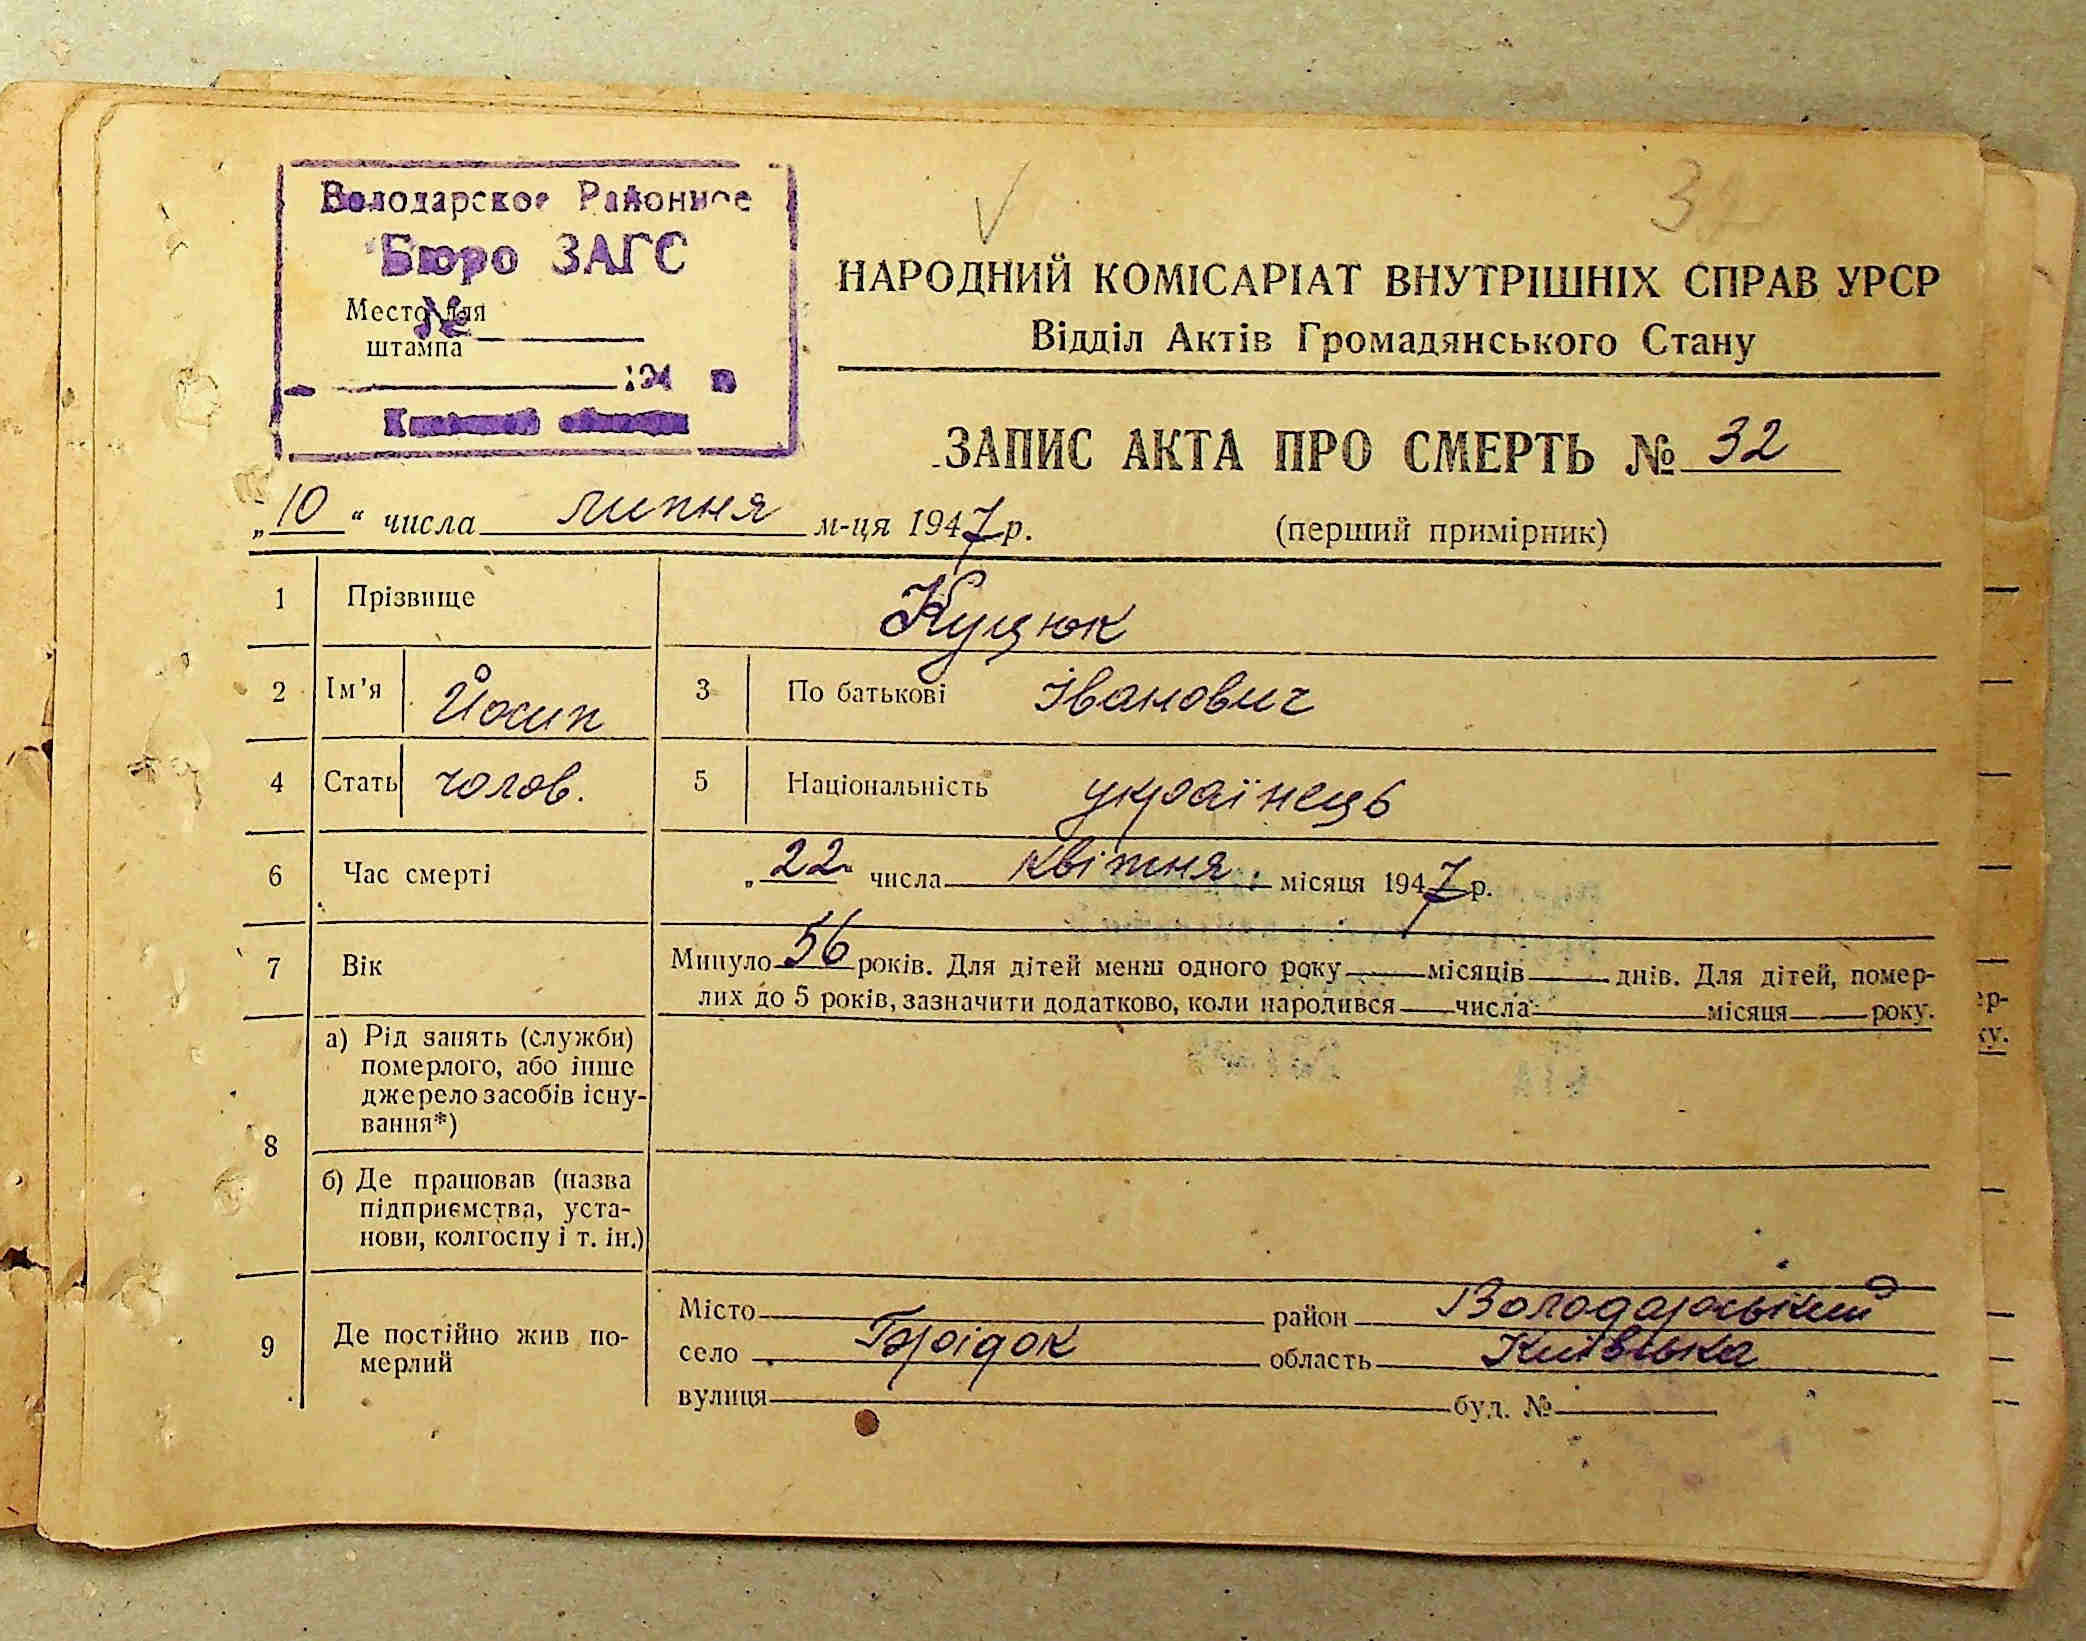 32
Володарское Районное
Бюро ЗАГС
Место для
№
штампа
194 г
НАРОДНИЙ КОМІСАРІАТ ВНУТРІШНІХ СПРАВ УРСР
Відділ Актів Громадянського Стану
ЗАПИС АКТА ПРО СМЕРТЬ № 32
„10“ числа липня м-ця 1947 р. (перший примірник)
1 Прізвище Куцюк
2 Ім'я Йосип 3 По батькові Іванович
4 Стать чолов. 5 Національність українець
6 Час смерті „22“ числа квітня місяця 1947 р.
7 Вік Минуло 56 років. Для дітей менш одного року місяців днів. Для дітей, помер-
лих до 5 років, зазначити додатково, коли народився числа місяця року.
8 а) Рід занять (служби)
померлого, або інше
джерело засобів існу-
вання*)
б) Де працював (назва
підприємства, уста-
нови, колгоспу і т. ін.)
9 Де постійно жив по-
мерлий
Місто район Володарський
село Грідок область Київська
вулиця буд. №
ер-
ку.